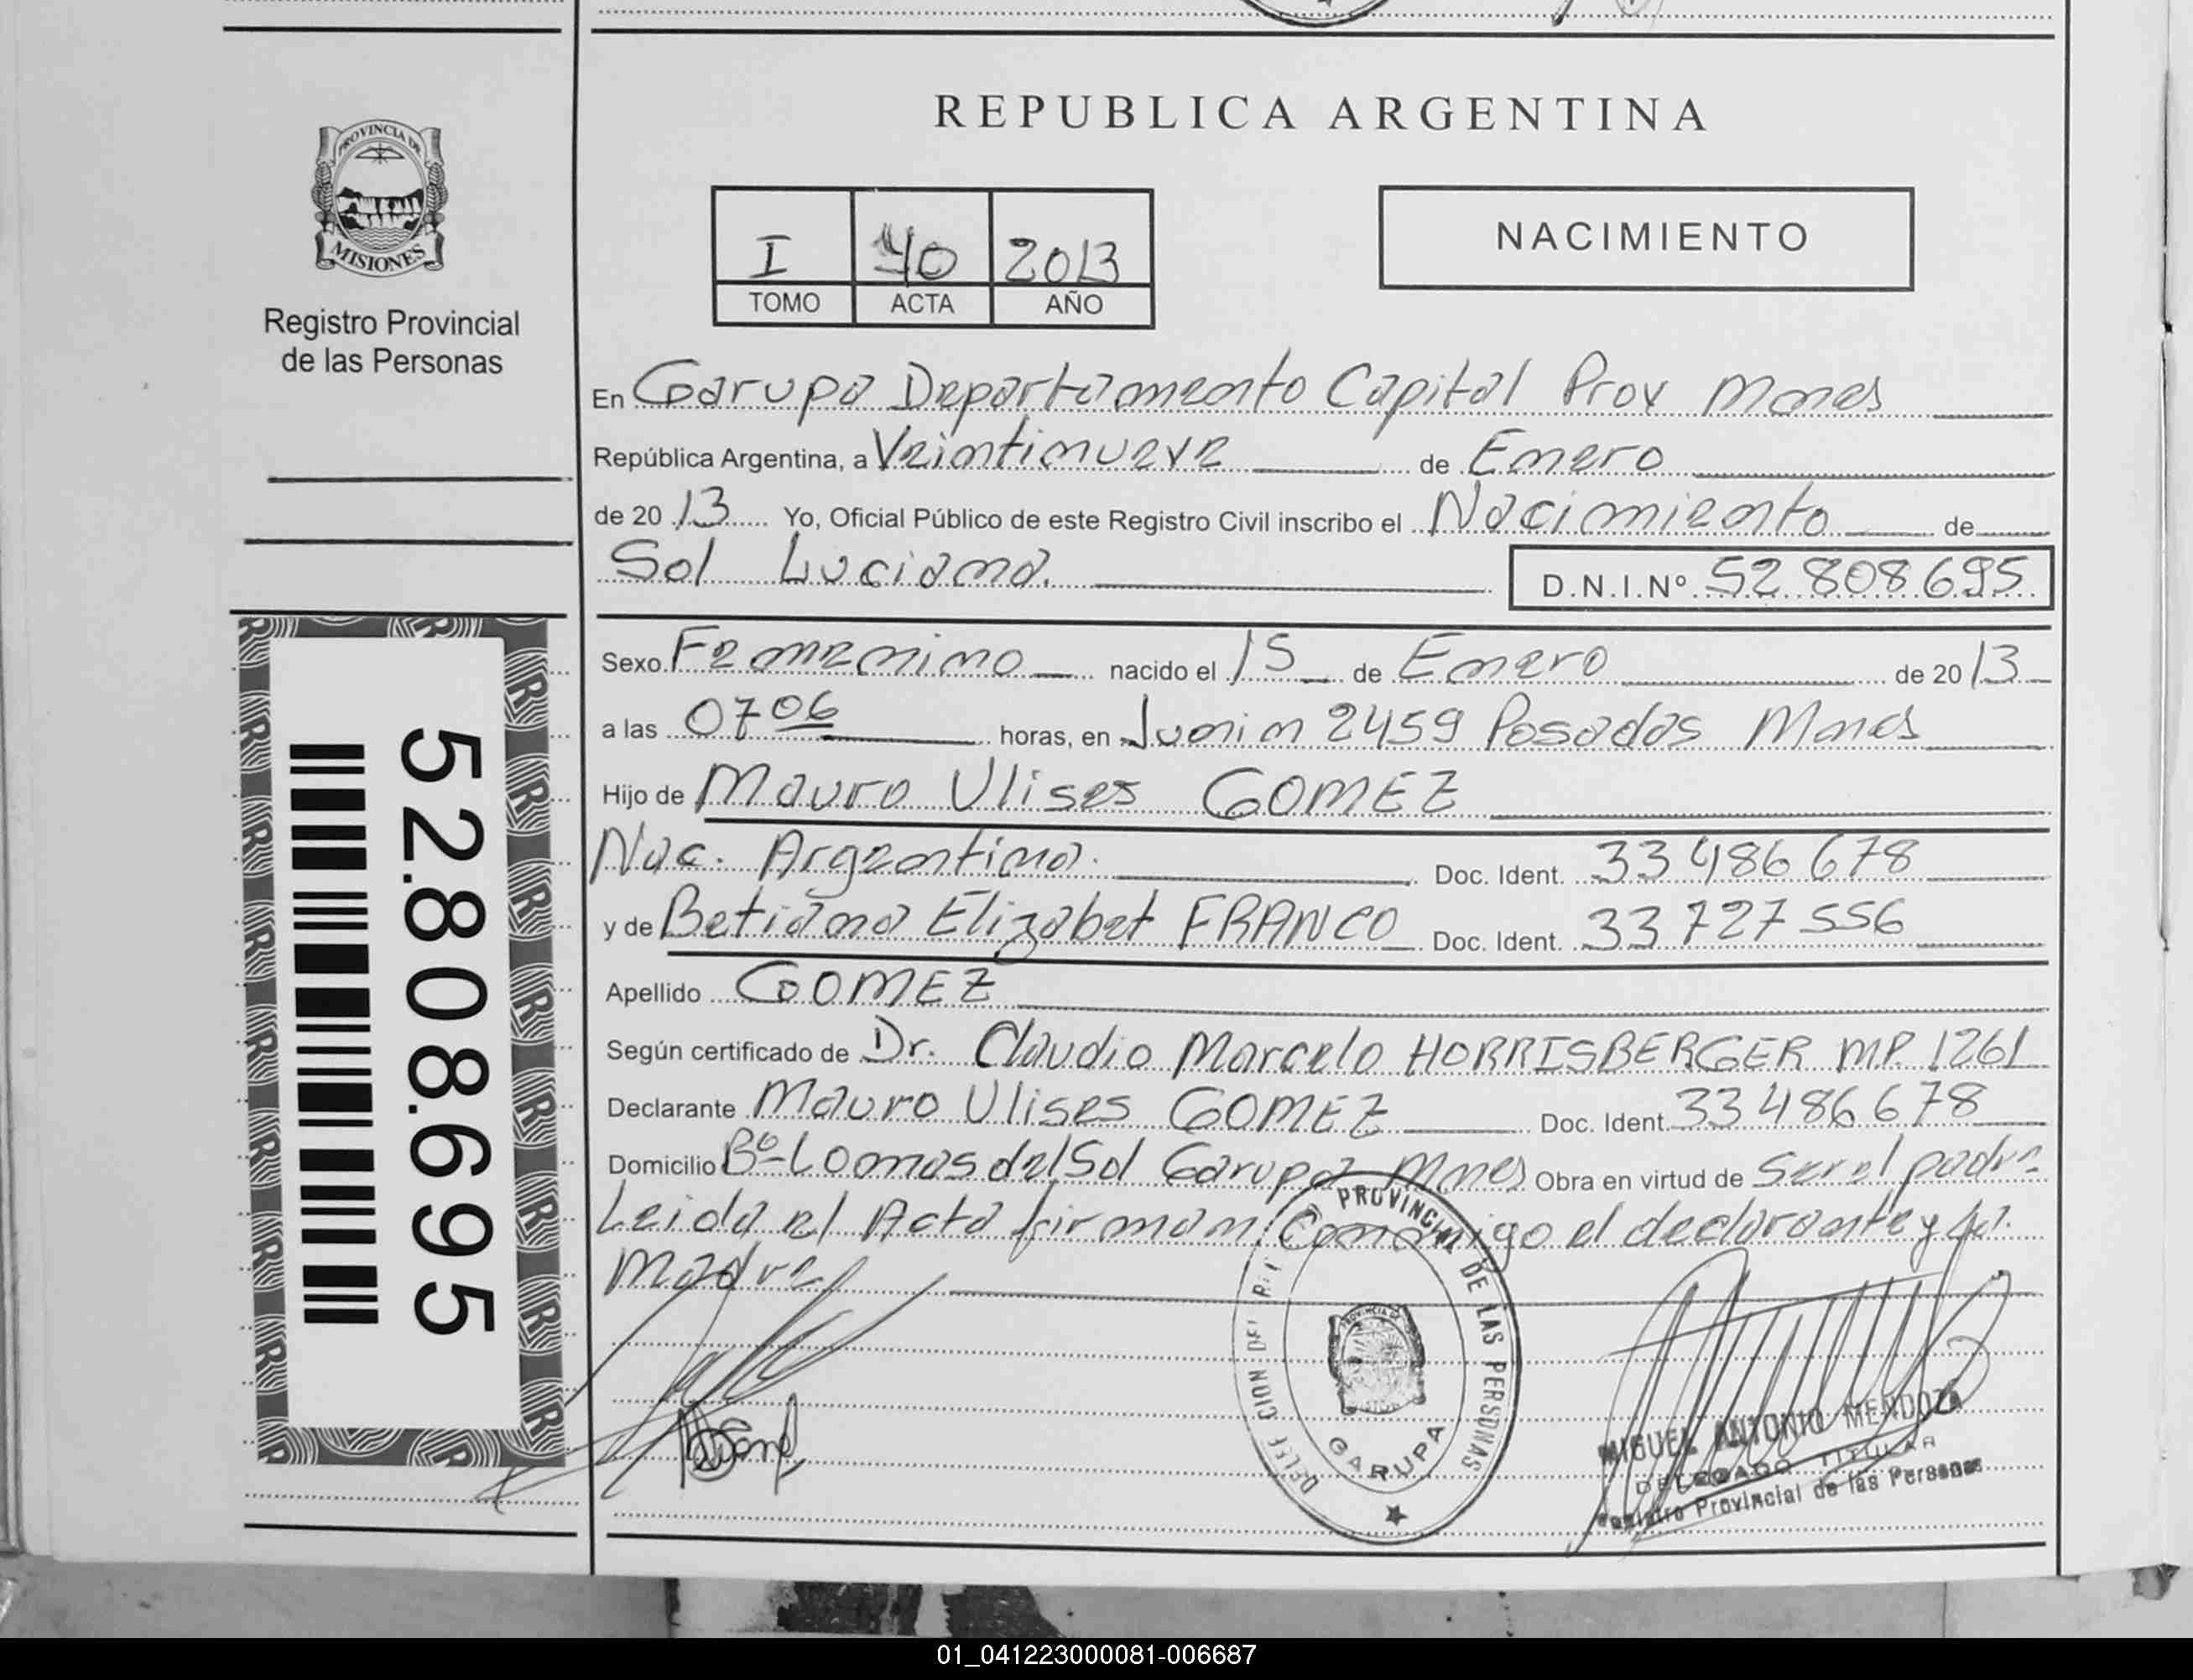 REPUBLICA ARGENTINA
PROVINCIA DE
MISIONES
Registro Provincial
de las Personas
I 40 2013
TOMO ACTA AÑO
NACIMIENTO
En Garupa Departamento Capital Prov Mnes
República Argentina, a Veintinueve de Enero
de 20 13 Yo, Oficial Público de este Registro Civil inscribo el Nacimiento de
Sol Luciana. D.N.I.Nº 52 808 695
Sexo Femenino nacido el 15 de Enero de 20 13
a las 0706 horas, en Junin 2459 Posadas Mnes
Hijo de Mauro Ulises GOMEZ
Nac. Argentina. Doc. Ident. 33 486 678
y de Betiana Elizabet FRANCO Doc. Ident. 33 727 556
Apellido GOMEZ
Según certificado de Dr. Claudio Marcelo HORRISBERGER MP. 1261
Declarante Mauro Ulises GOMEZ Doc. Ident. 33 486 678
Domicilio Bº Lomas del Sol Garupa Mnes Obra en virtud de Ser el padre
Leida el Acta firman Conmigo el declarante y la
Madre
52.808.695
PROVINCIAL DE LAS PERSONAS
GARUPA
MIGUEL ANTONIO MENDOZA
DELEGADO TITULAR
Registro Provincial de las Personas
01_041223000081-006687